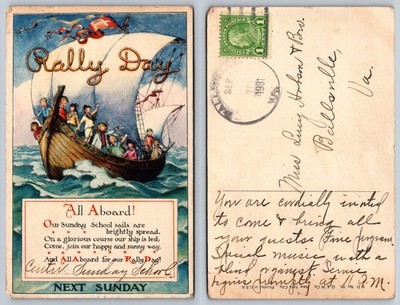 Rally Day
All Aboard!
Our Sunday School sails are
brightly spread.
On a glorious course our ship is led;
Come, join our happy and sunny way,
And All Aboard for our Rally Day!
Center Sunday School
NEXT SUNDAY
1
1
SEP
1931
VA.
Miss Lucy Hobson & Bro.
Ballsville,
Va.
You are cordially invited
to come & bring all
your guests. Fine program
Special music with a
blind organist. Service
begins promptly at 10 A.M.